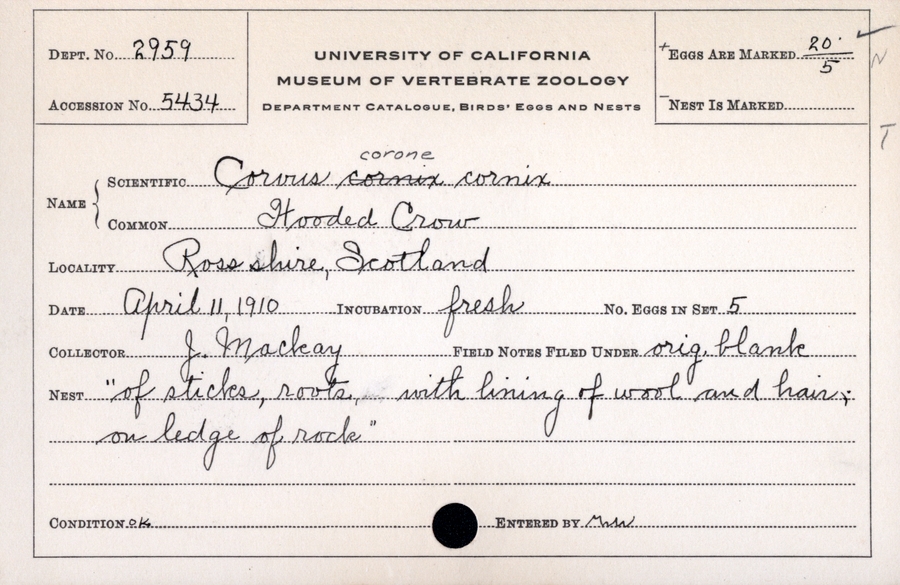 Dept. No. 2959
Accession No. 5434
UNIVERSITY OF CALIFORNIA
MUSEUM OF VERTEBRATE ZOOLOGY
Department Catalogue, Birds' Eggs and Nests
+Eggs Are Marked 20/5
N
-Nest Is Marked
T
corone
Name { Scientific Corvus cornix cornix
Common Hooded Crow
Locality Ross shire, Scotland
Date April 11, 1910 Incubation fresh No. Eggs in Set 5
Collector J. Mackay Field Notes Filed Under orig. blank
Nest "of sticks, roots, with lining of wool and hair;
on ledge of rock"
Condition ok Entered by